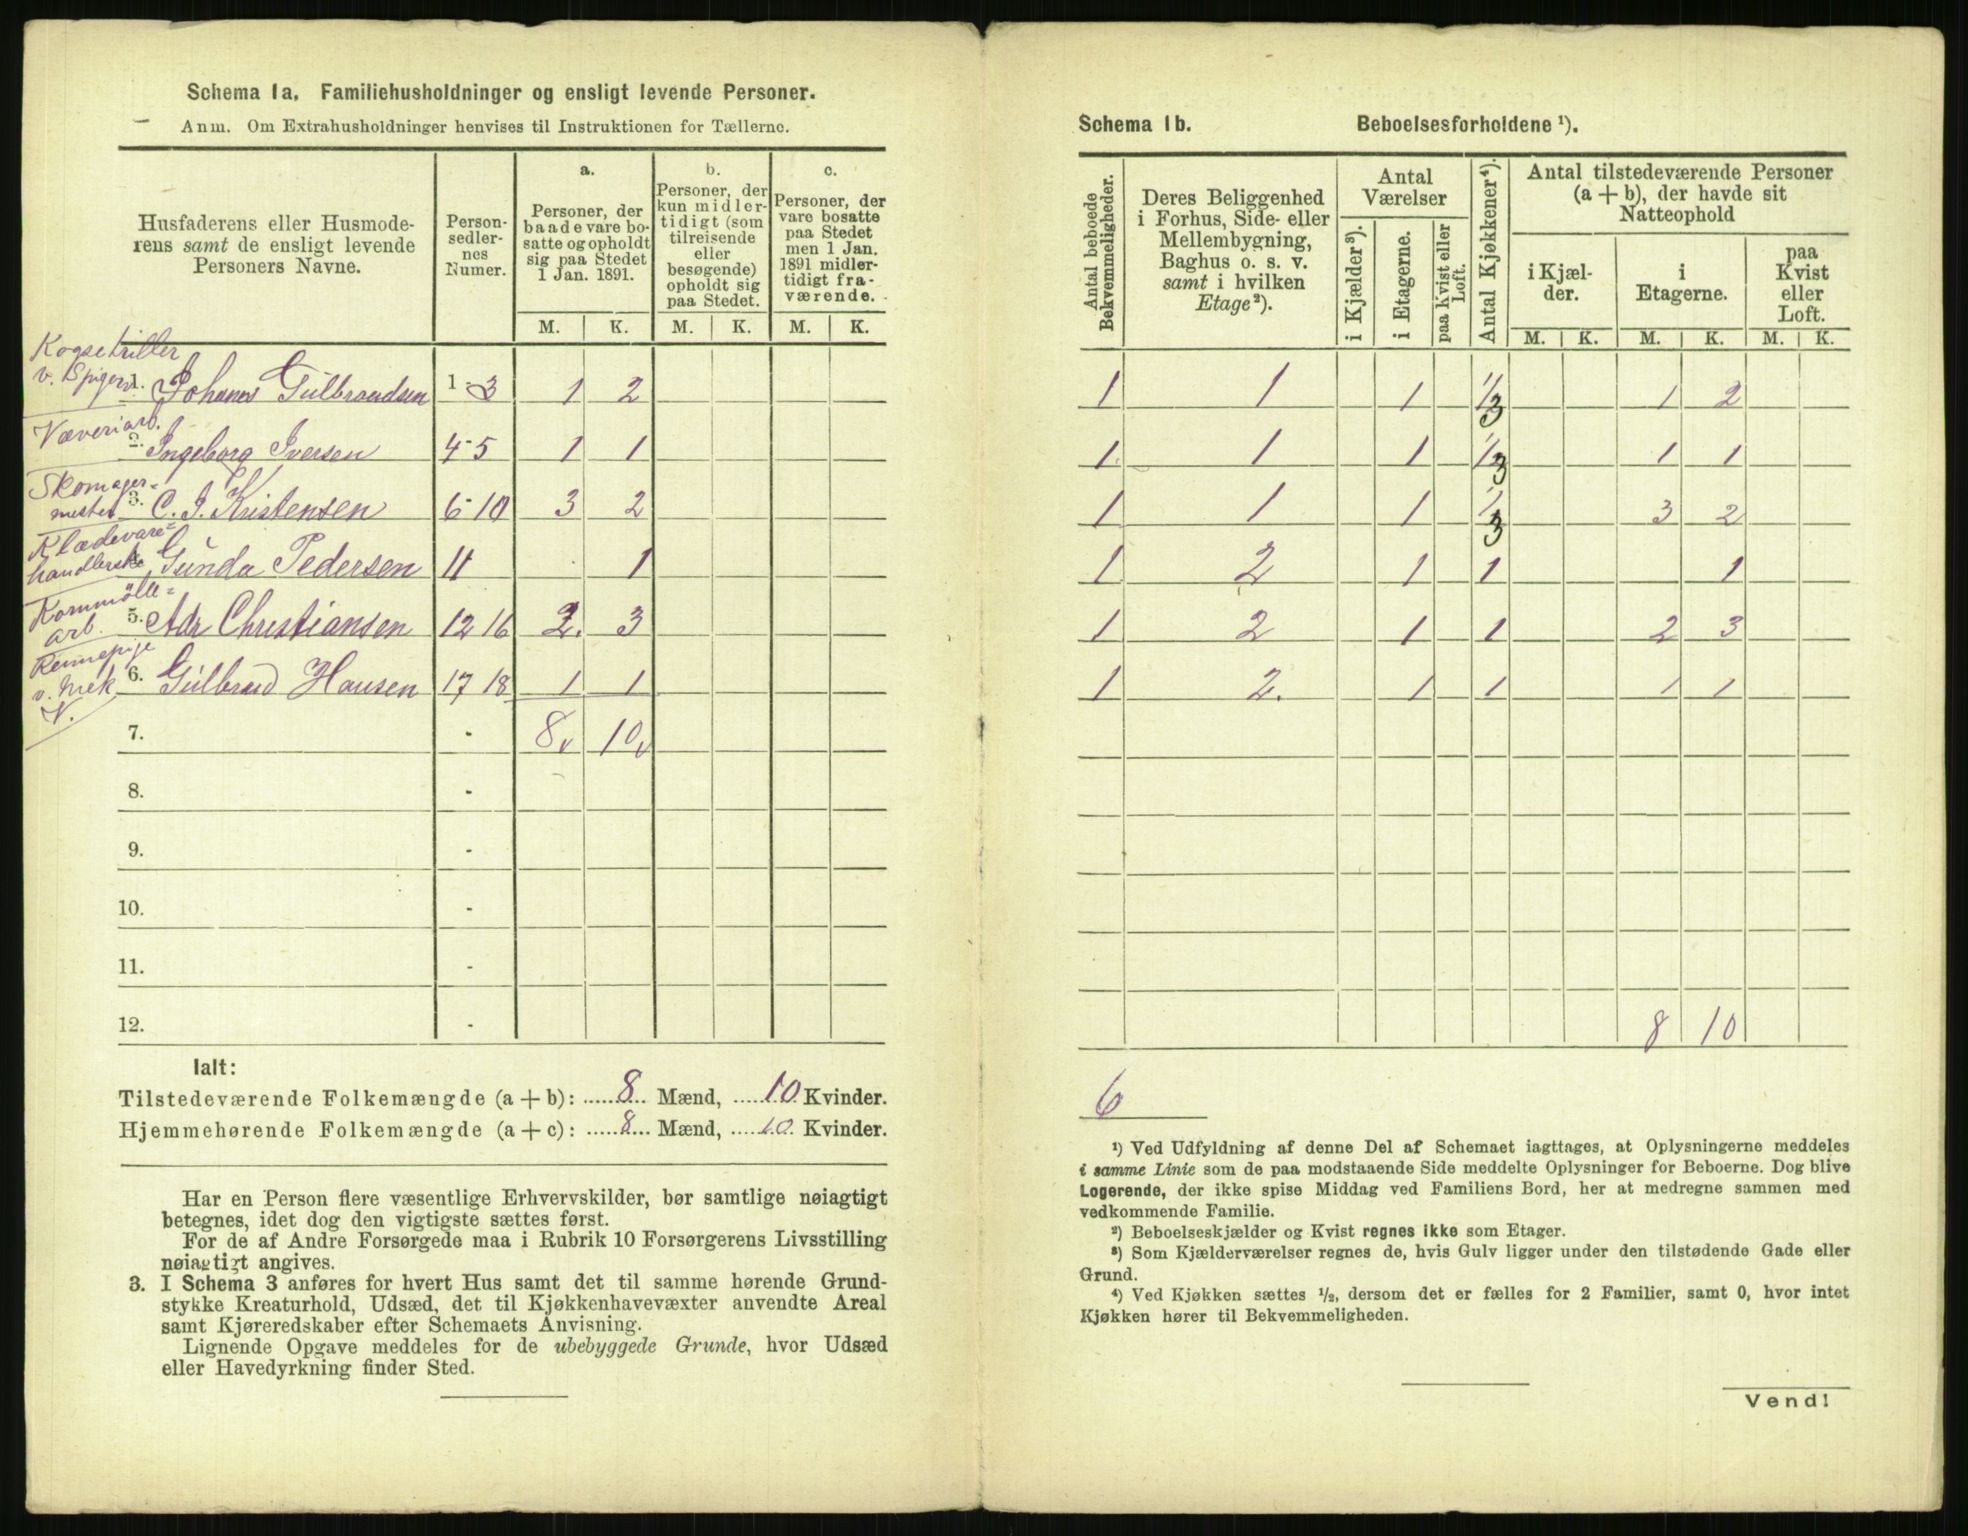 Schema 1a. Familiehusholdninger og ensligt levende Personer.
Anm. Om Extrahusholdninger henvises til Instruktionen for Tællerne.
Husfaderens eller Husmoderens samt de ensligt levende Personers Navne. | Personsedlernes Numer. | a. Personer, der baade vare bosatte og opholdt sig paa Stedet 1 Jan. 1891. | b. Personer, der kun midlertidigt (som tilreisende eller besøgende) opholdt sig paa Stedet. | c. Personer, der vare bosatte paa Stedet men 1 Jan. 1891 midlertidigt fraværende.
M. K. M. K. M. K.
v. Spigers.
1. Johannes Gulbrandsen 1-3 1 2
Væveriarb.
2. Ingeborg Iversen 4-5 1 1
Skomager-
mester
3. C. J. Kristensen 6-10 3 2
Klædevare=
handlerske
Gunda Pedersen 11 1
Kornmölle=
arb.
5. Adr Christiansen 12 16 2. 3
v. Mek.
V.
6. Gulbrand Hansen 17 18 1 1
7. - 8 10
8. -
9. -
10. -
11. -
12. -
Ialt:
Tilstedeværende Folkemængde (a + b): 8 Mænd, 10 Kvinder.
Hjemmehørende Folkemængde (a + c): 8 Mænd, 10 Kvinder.
Har en Person flere væsentlige Erhvervskilder, bør samtlige nøiagtigt
betegnes, idet dog den vigtigste sættes først.
For de af Andre Forsørgede maa i Rubrik 10 Forsørgerens Livsstilling
nøiagtigt angives.
3. I Schema 3 anføres for hvert Hus samt det til samme hørende Grund-
stykke Kreaturhold, Udsæd, det til Kjøkkenhavevæxter anvendte Areal
samt Kjøreredskaber efter Schemaets Anvisning.
Lignende Opgave meddeles for de ubebyggede Grunde, hvor Udsæd
eller Havedyrkning finder Sted.
Schema 1b. Beboelsesforholdene ¹).
Antal beboede Bekvemmeligheder. | Deres Beliggenhed i Forhus, Side- eller Mellembygning, Baghus o. s. v. samt i hvilken Etage²). | Antal Værelser | i Kjælder³). | i Etagerne. | paa Kvist eller Loft. | Antal Kjøkkener⁴). | Antal tilstedeværende Personer (a + b), der havde sit Natteophold | i Kjælder. | i Etagerne. | paa Kvist eller Loft.
M. K. M. K. M. K.
1 1 1 1/3 1 2
1 1 1 1/3 1 1
1 1 1 1/3 3 2
1 2 1 1 1
1 2 1 1 2 3
1 2. 1 1 1 1
8 10
6
¹) Ved Udfyldning af denne Del af Schemaet iagttages, at Oplysningerne meddeles
i samme Linie som de paa modstaaende Side meddelte Oplysninger for Beboerne. Dog blive
Logerende, der ikke spise Middag ved Familiens Bord, her at medregne sammen med
vedkommende Familie.
²) Beboelseskjælder og Kvist regnes ikke som Etager.
³) Som Kjælderværelser regnes de, hvis Gulv ligger under den tilstødende Gade eller
Grund.
⁴) Ved Kjøkken sættes ½, dersom det er fælles for 2 Familier, samt 0, hvor intet
Kjøkken hører til Bekvemmeligheden.
Vend!